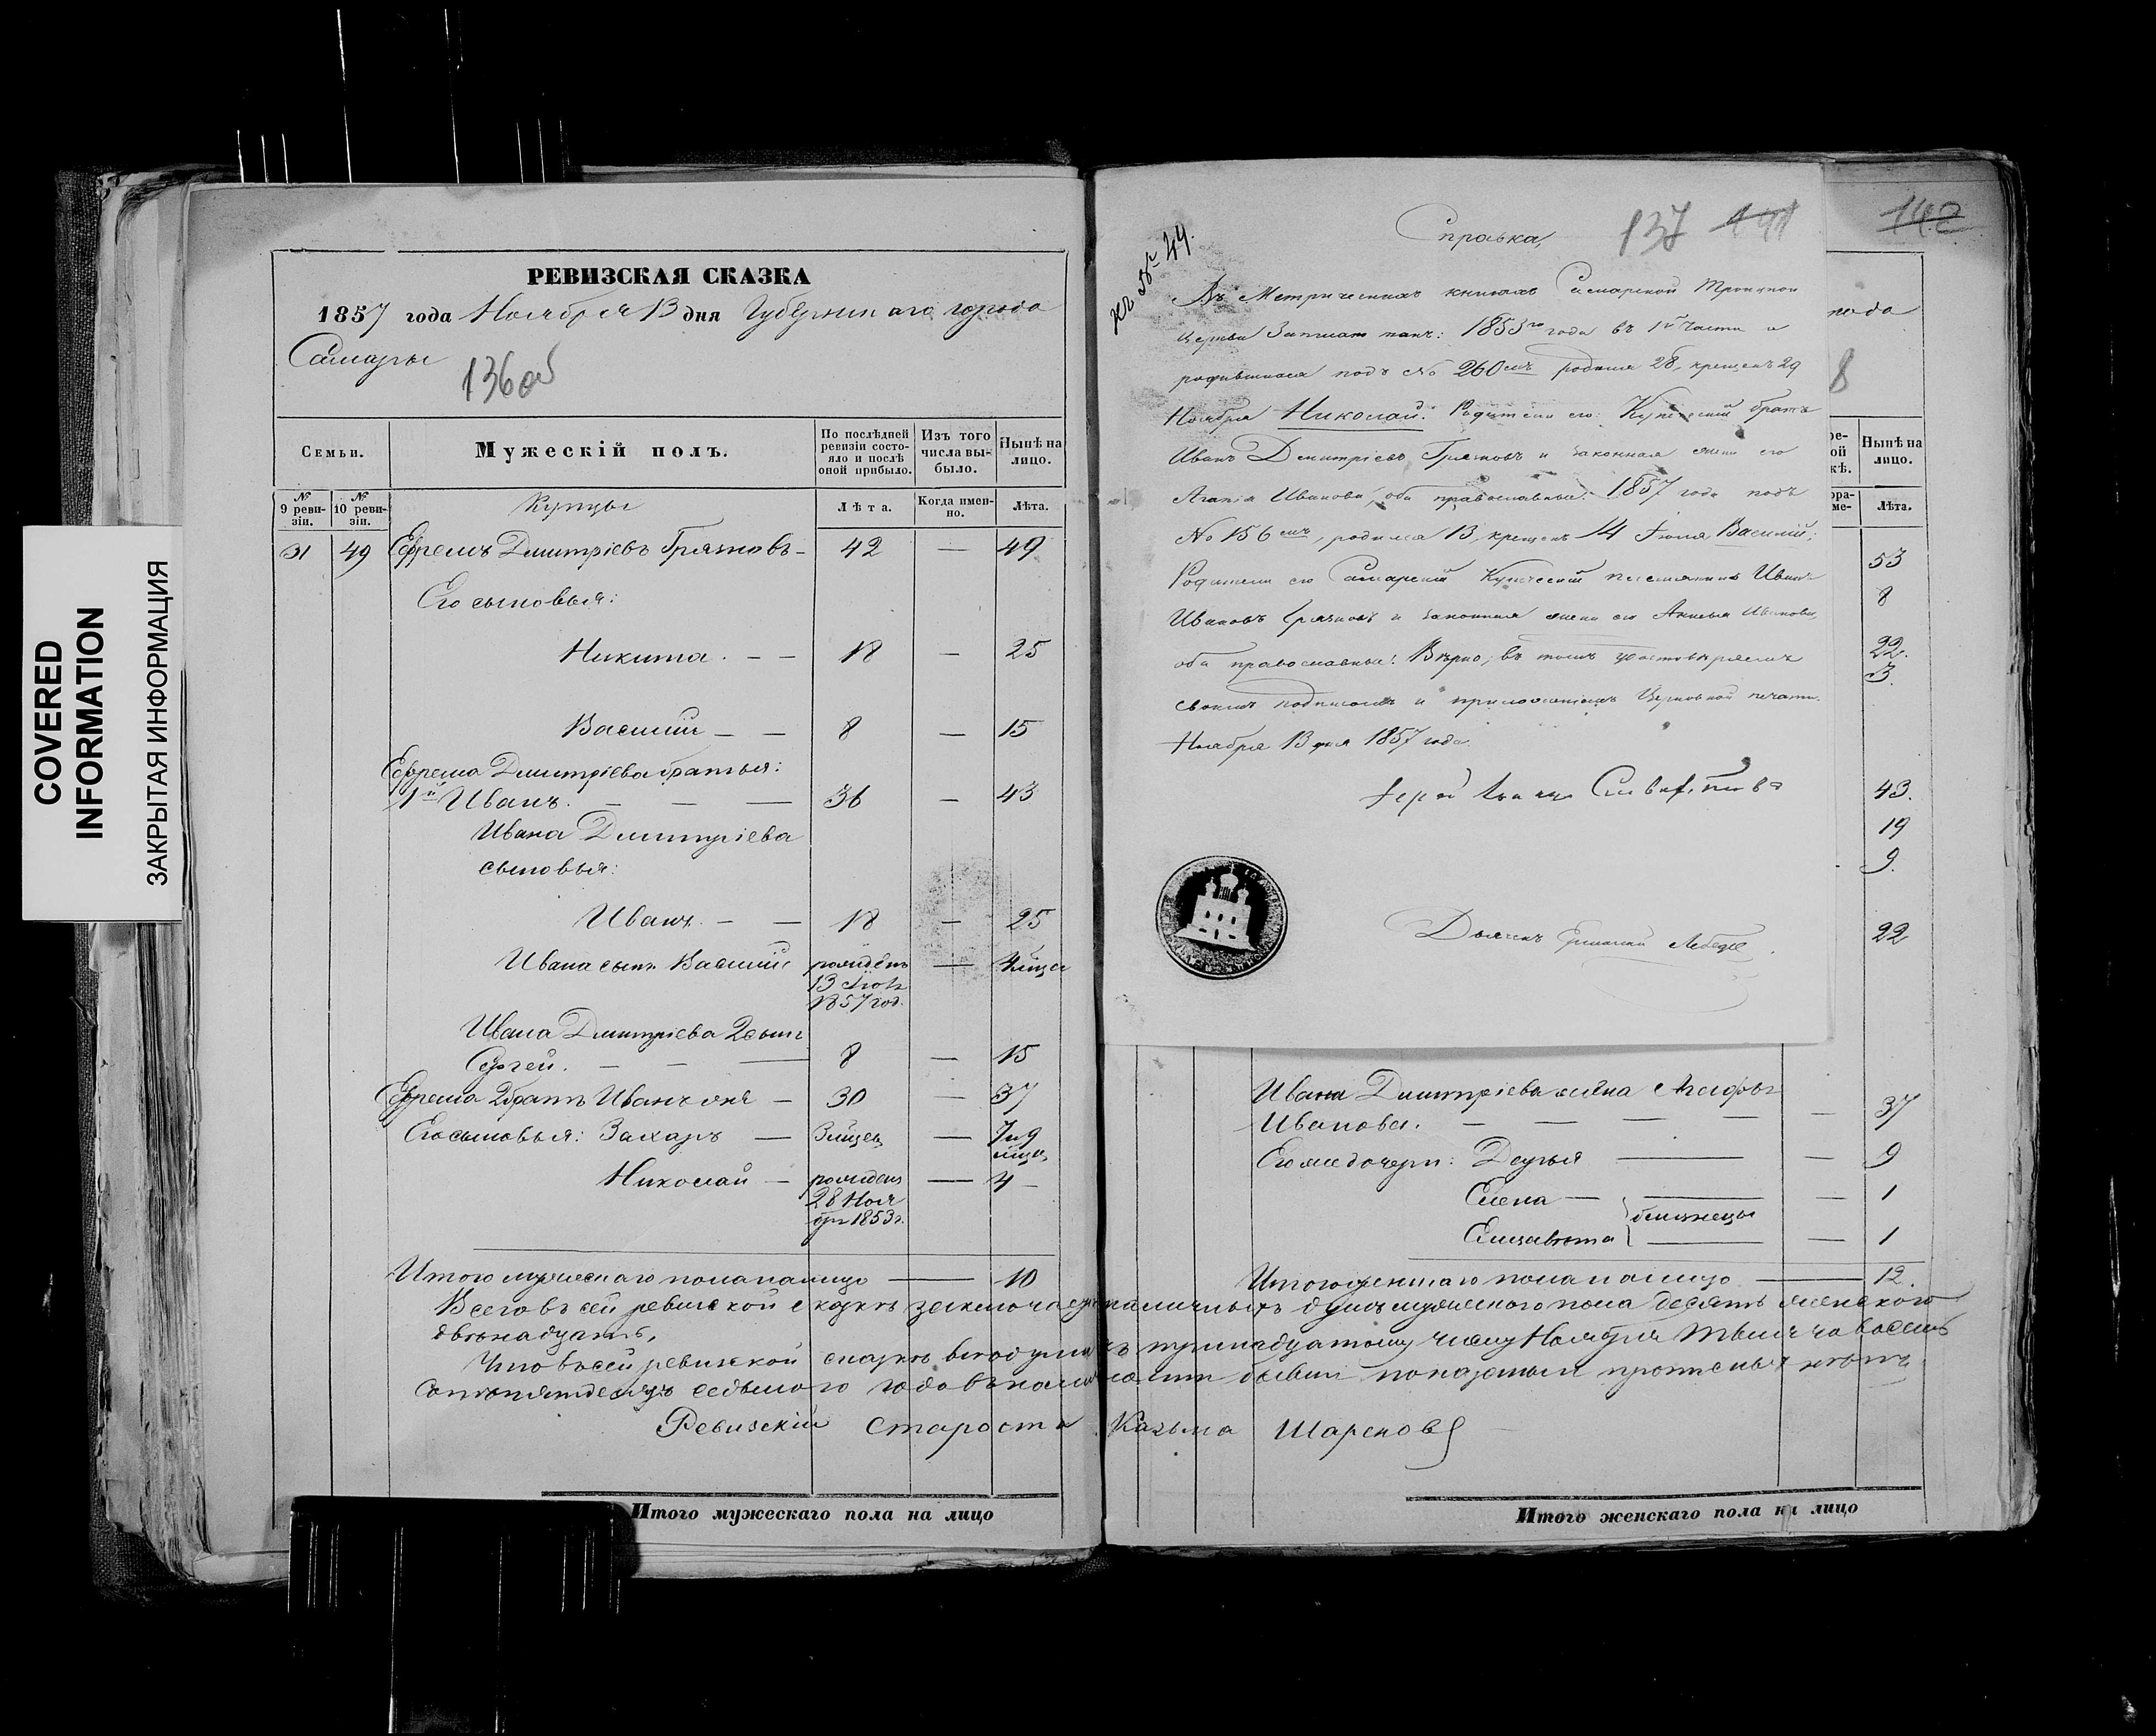 COVERED
INFORMATION
ЗАКРЫТАЯ ИНФОРМАЦИЯ
РЕВИЗСКАЯ СКАЗКА
1857 года Ноября 13 дня Губернскаго города
Самары
136об
Семьи.
Мужескій полъ.
По послѣдней ревизіи состояло и послѣ оной прибыло.
Изъ того числа выбыло.
Нынѣ на лицо.
№ 9 ревизіи.
№ 10 ревизіи.
Лѣта.
Когда именно.
Лѣта.
Купцы
31 49 Ефремъ Дмитріевъ Грязновъ — 42 — 49
Его сыновья:
Никита. — — 18 — 25
Василій — — 8 — 15
Ефрема Дмитріева братья:
1й Иванъ. — — — 36 — 43
Ивана Дмитріева
сыновья:
Иванъ. — — 18 — 25
Ивана сынъ Василій рожденъ — 4 мѣца
13
1857 год.
Ивана Дмитріева 2 сынъ
Сергей. — — — 8 — 15
Ефрема 2 братъ Иванъ же — 30 — 37
Его сыновья: Захаръ — 3 мѣсец. — 7 и 9
мѣца
Николай — рожденъ — 4 —
28 Ноя
бря 1853 г.
Итого мужескаго пола налицо — 10
Справка,
137 141
Къ № 49.
Въ Метрическихъ книгахъ Самарской Троицкой
церкви записано такъ: 1853го года въ 1й части о
родившихся подъ № 260мъ родился 28, крещенъ 29
Ноября Николай. Родители его: Купеческій братъ
Иванъ Дмитріевъ Грязновъ и законная жена его
Агапія Иванова, оба православные. 1857 года подъ
№ 156мъ, родился 13, крещенъ 14 Іюля Василій;
Родители его Самарскій Купеческій племянникъ Иванъ
Ивановъ Грязновъ и законная жена его Ивановна,
оба православные. Вѣрно, въ томъ удостовѣряемъ
своимъ подписомъ и приложеніемъ Церковной печати.
Ноября 13 дня 1857 года.
Діаконъ
142
8
Нынѣ на лицо.
Лѣта.
53
8
22.
3.
43.
19
9.
22
Ивана Дмитріева жена
Иванова. — — — — — 37
Его же дочери: Дарья — — 9
Елена — — — 1
близнецы
Елисавета — — 1
Итого женскаго пола налицо — 12.
Всего въ сей ревизской сказкѣ заключается наличныхъ душъ мужескаго пола десять женскаго
двѣнадцать.
Что въ сей ревизской сказкѣ всѣ души къ тринадцатому числу Ноября тысяча восемь
сотъ пятдесятъ седьмого года въ наличности бывши показаны и прописныхъ нѣтъ.
Ревизскій староста Казьма Шареновъ
Итого мужескаго пола на лицо
Итого женскаго пола на лицо